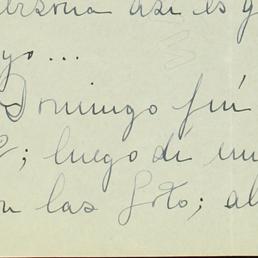 persona así es y
yo...
Domingo fuí
; luego dí un
las foto; al